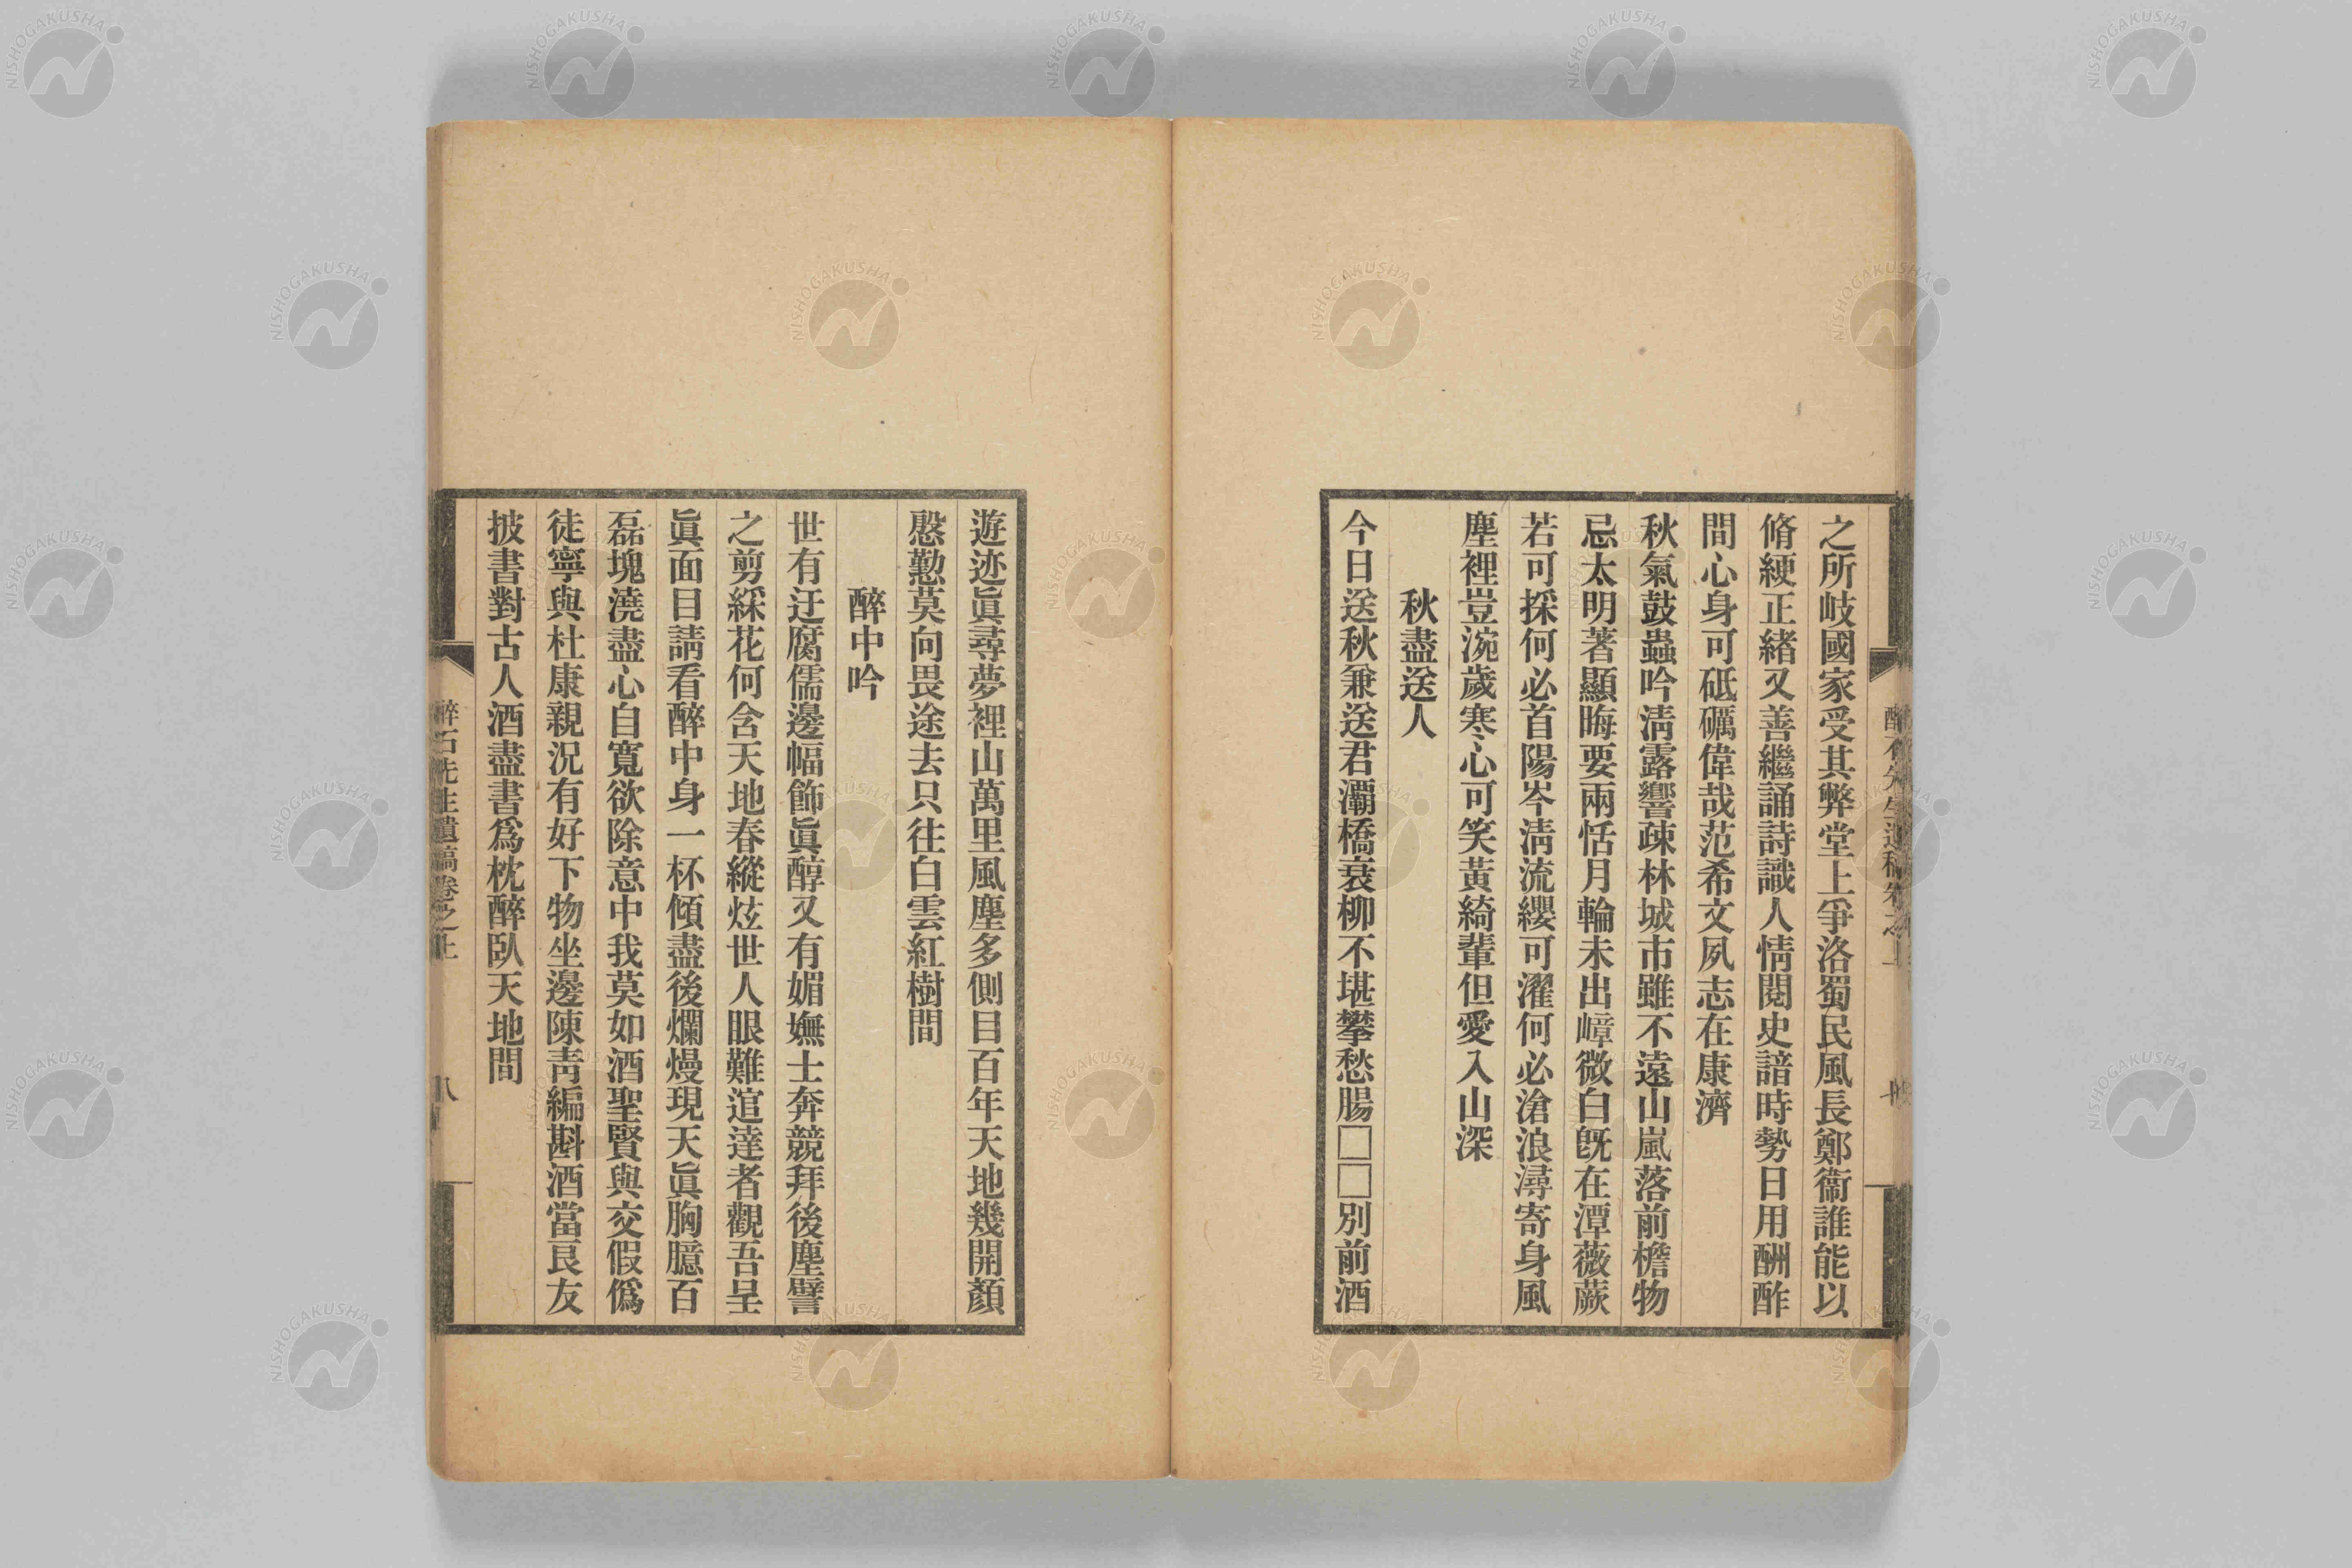 之所岐國家受其弊堂上爭洛蜀民風長鄭衞誰能以
脩綆正緒又善繼誦詩識人情閱史諳時勢日用酬酢
間心身可砥礪偉哉范希文夙志在康濟
秋氣鼓蟲吟淸露響疎林城市雖不遠山嵐落前檐物
忌太明著顯晦要兩恬月輪未出嶂微白旣在潭薇蕨
若可採何必首陽岑淸流纓可濯何必滄浪潯寄身風
塵裡豈涴歲寒心可笑黃綺輩但愛入山深
秋盡送人
今日送秋兼送君灞橋衰柳不堪攀愁腸□□別前酒
遊迹眞尋夢裡山萬里風塵多側目百年天地幾開顏
慇懃莫向畏途去只往白雲紅樹間
醉中吟
世有迂腐儒邊幅飾眞醇又有媚嫵士奔競拜後塵譬
之剪綵花何含天地春縱炫世人眼難逭達者觀吾呈
眞面目請看醉中身一杯傾盡後爛熳現天眞胸臆百
磊塊澆盡心自寬欲除意中我莫如酒聖賢與交假僞
徒寧與杜康親況有好下物坐邊陳靑編斟酒當良友
披書對古人酒盡書爲枕醉臥天地間
醉石先生遺稿卷之上
八
NISHOGAKUSHA